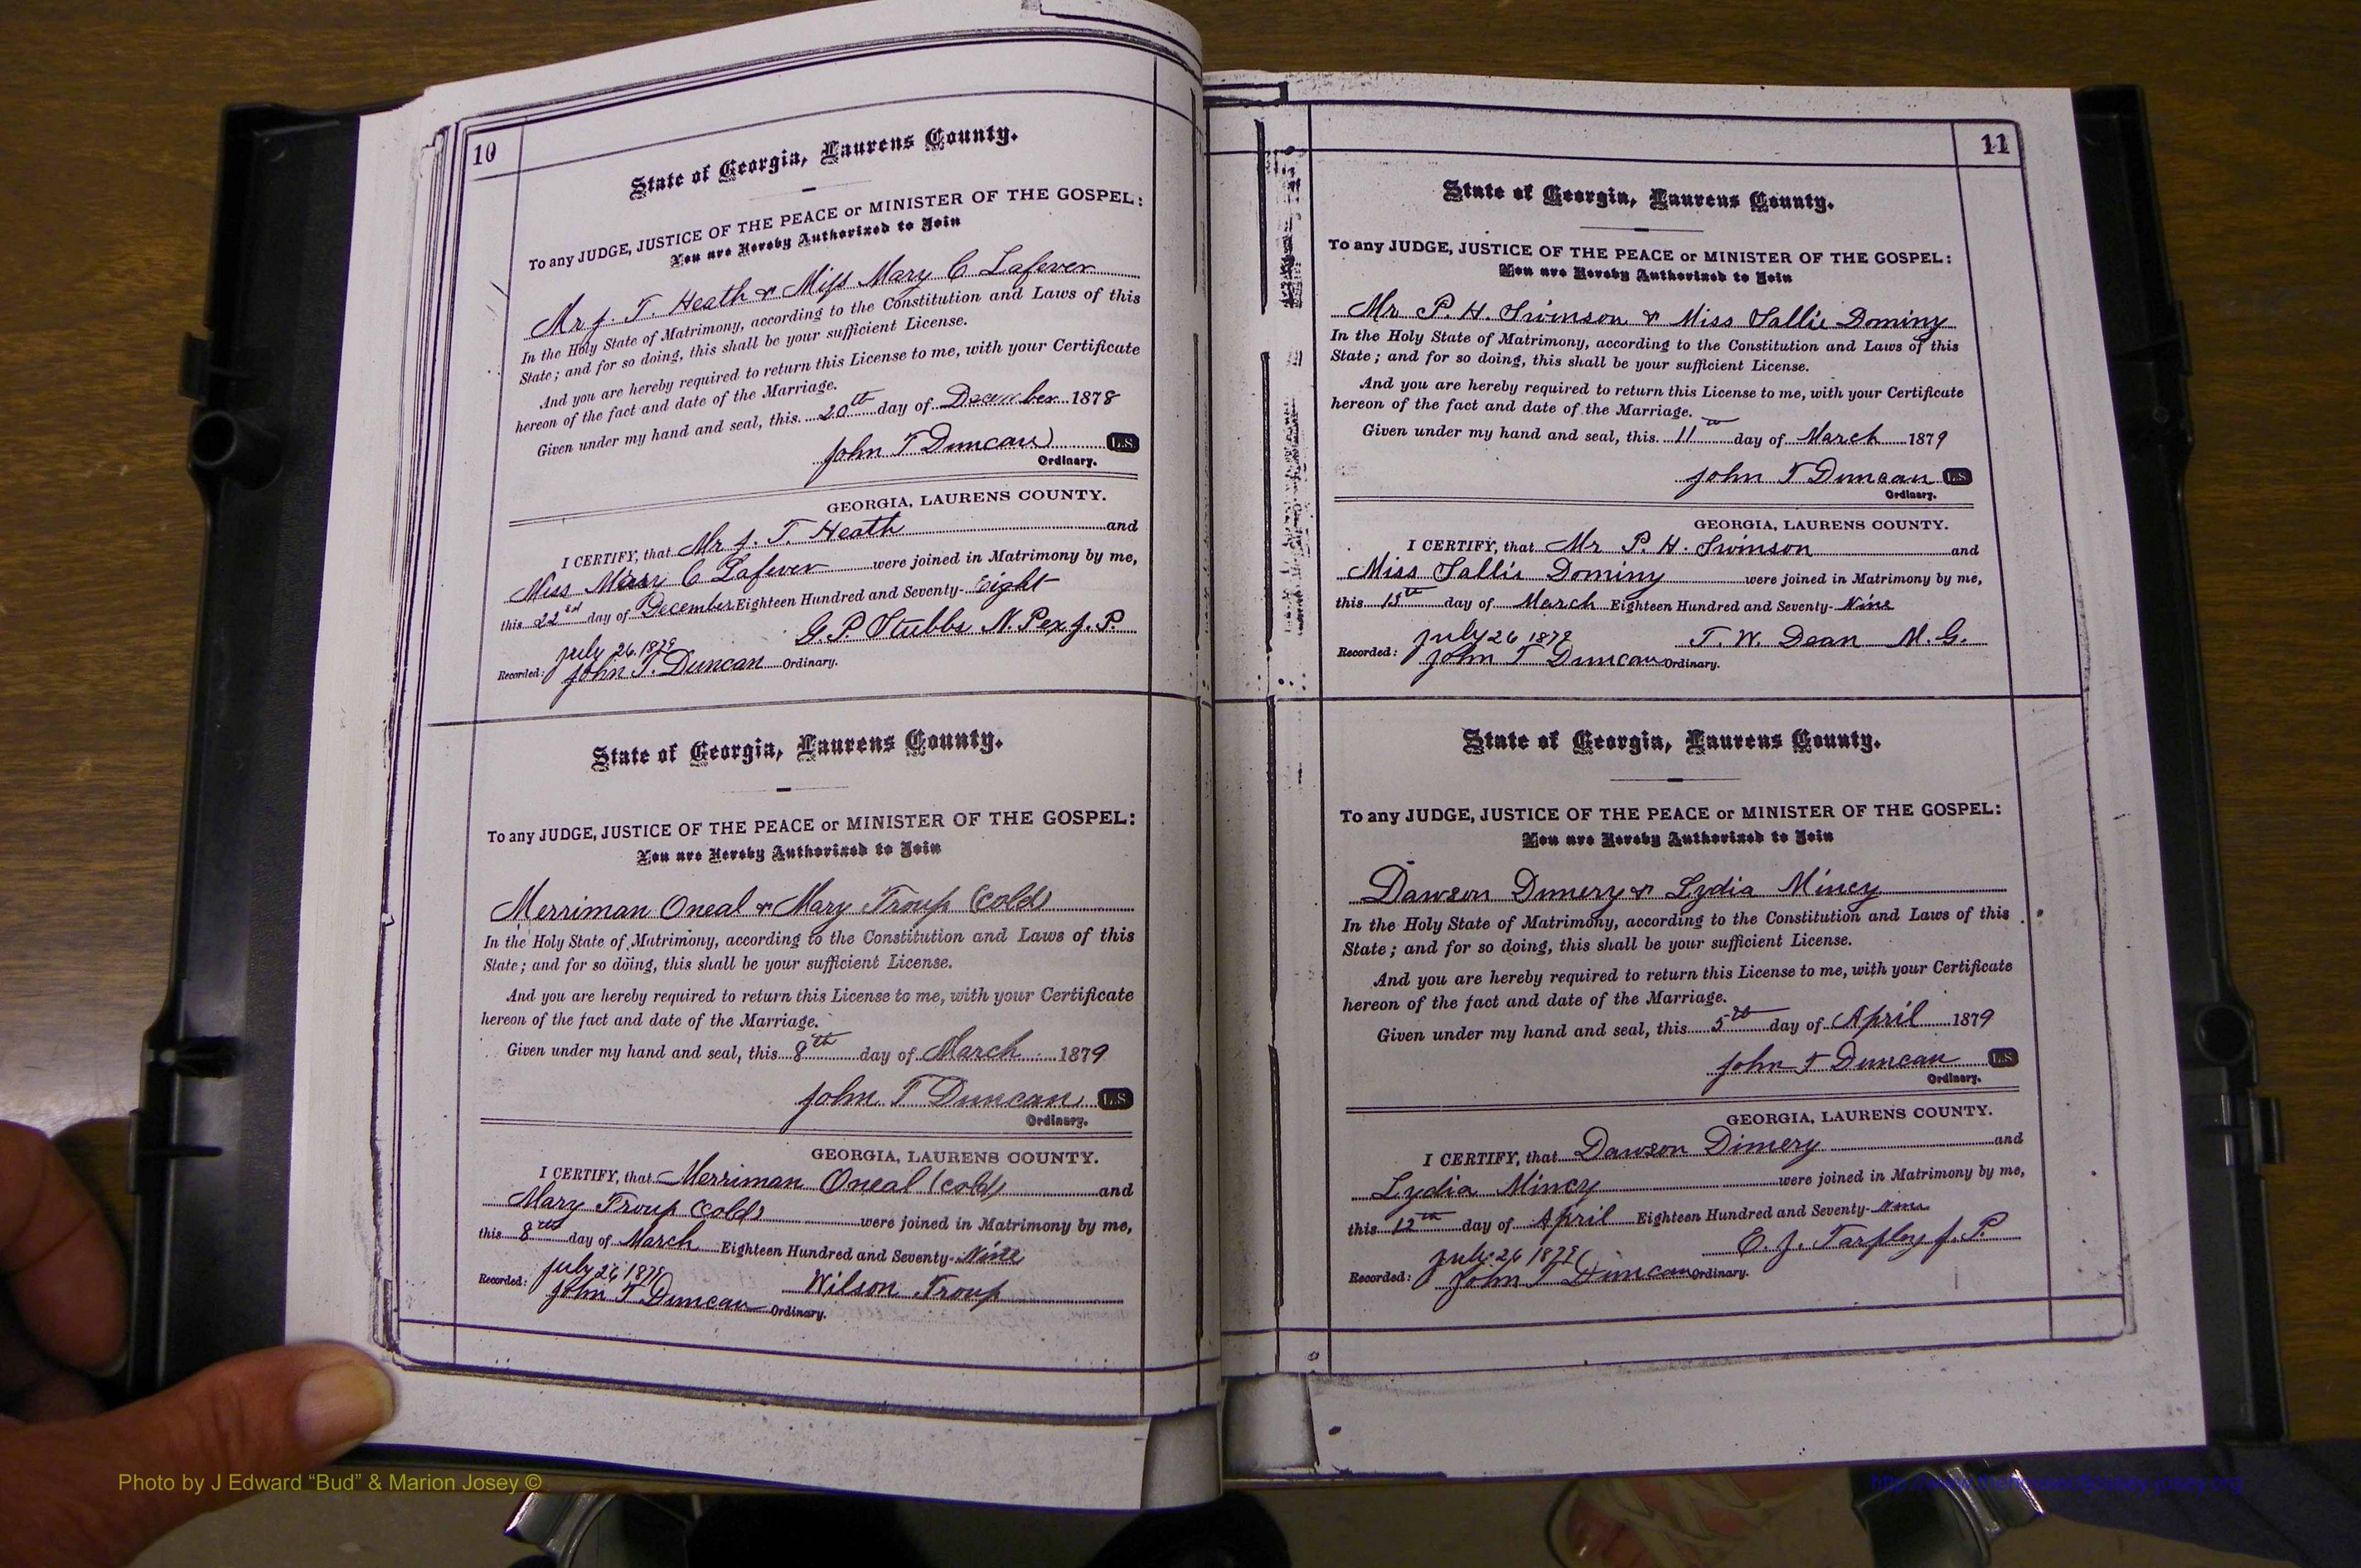 10
State of Georgia, Laurens County.
To any JUDGE, JUSTICE OF THE PEACE or MINISTER OF THE GOSPEL:
You are Hereby Authorized to Join
Mr J. T. Heath & Miss Mary C Lafever
In the Holy State of Matrimony, according to the Constitution and Laws of this
State; and for so doing, this shall be your sufficient License.
And you are hereby required to return this License to me, with your Certificate
hereon of the fact and date of the Marriage.
Given under my hand and seal, this 20th day of December 1878
John T Duncan L.S.
Ordinary.
GEORGIA, LAURENS COUNTY.
I CERTIFY, that Mr J. T. Heath and
Miss Mary C Lafever were joined in Matrimony by me,
this 22nd day of December Eighteen Hundred and Seventy-Eight
G. P. Stubbs N. P. ex J. P.
July 26. 1879
Recorded: John T. Duncan Ordinary.
State of Georgia, Laurens County.
To any JUDGE, JUSTICE OF THE PEACE or MINISTER OF THE GOSPEL:
You are Hereby Authorized to Join
Merriman Oneal & Mary Troup (cold)
In the Holy State of Matrimony, according to the Constitution and Laws of this
State; and for so doing, this shall be your sufficient License.
And you are hereby required to return this License to me, with your Certificate
hereon of the fact and date of the Marriage.
Given under my hand and seal, this 8th day of March 1879
John T Duncan L.S.
Ordinary.
GEORGIA, LAURENS COUNTY.
I CERTIFY, that Merriman Oneal (cold) and
Mary Troup (cold) were joined in Matrimony by me,
this 8th day of March Eighteen Hundred and Seventy-Nine
July 26 1879 Wilson Troup
Recorded: John T Duncan Ordinary.
11
State of Georgia, Laurens County.
To any JUDGE, JUSTICE OF THE PEACE or MINISTER OF THE GOSPEL:
You are Hereby Authorized to Join
Mr P. H. Swinson & Miss Sallie Dominy
In the Holy State of Matrimony, according to the Constitution and Laws of this
State; and for so doing, this shall be your sufficient License.
And you are hereby required to return this License to me, with your Certificate
hereon of the fact and date of the Marriage.
Given under my hand and seal, this 11th day of March 1879
John T Duncan L.S.
Ordinary.
GEORGIA, LAURENS COUNTY.
I CERTIFY, that Mr P. H. Swinson and
Miss Sallie Dominy were joined in Matrimony by me,
this day of March Eighteen Hundred and Seventy-Nine
July 26 1879 T. W. Dean M. G.
Recorded: John T Duncan Ordinary.
State of Georgia, Laurens County.
To any JUDGE, JUSTICE OF THE PEACE or MINISTER OF THE GOSPEL:
You are Hereby Authorized to Join
Dawson Dimery & Lydia Mincy
In the Holy State of Matrimony, according to the Constitution and Laws of this
State; and for so doing, this shall be your sufficient License.
And you are hereby required to return this License to me, with your Certificate
hereon of the fact and date of the Marriage.
Given under my hand and seal, this 5th day of April 1879
John T Duncan L.S.
Ordinary.
GEORGIA, LAURENS COUNTY.
I CERTIFY, that Dawson Dimery and
Lydia Mincy were joined in Matrimony by me,
this day of April Eighteen Hundred and Seventy-Nine
July 26 1879 E. J. Tarpley J. P.
Recorded: John T Duncan Ordinary.
Photo by J Edward “Bud” & Marion Josey ©